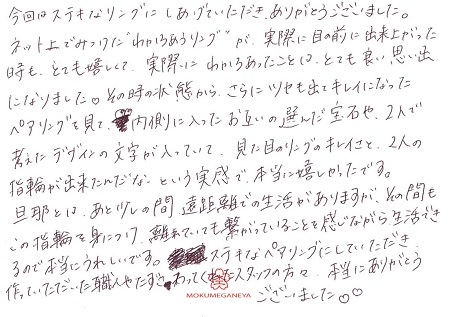 今回はステキなリングにしあげていただき、ありがとうございました。
ネット上でみつけた"わかちあうリング"が、実際に目の前に出来上がった
時も、とても嬉しくて、実際にわかちあったことは、とても良い思い出
になりました♡その時の状態から、さらにツヤも出てキレイになった
ペアリングを見て、内側に入ったお互いの選んだ宝石や、2人で
考えたデザインの文字が入っていて、見た目のリングのキレイさと、2人の
指輪が出来たんだな という実感で、本当に嬉しかったです。
旦那とは、あと少しの間、遠距離での生活がありますが、その間も
この指輪を身につけ、離れていても繋がっていることを感じながら生活でき
るので本当にうれしいです。ステキなペアリングにしていただき
作っていただいた職人やたずさわってくれたスタッフの方々、本当にありがとう
ございました♡♡
MOKUMEGANEYA